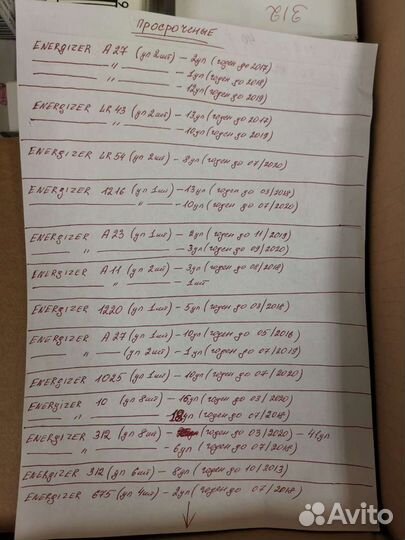 312
Просроченные
ENERGIZER A27 (уп 2шт) – 2уп (годен до 2017)
—— " —— – 1уп (годен до 2018)
—— " —— – 12уп (годен до 2019)
ENERGIZER LR43 (уп 2шт) – 13уп (годен до 2017)
—— " —— – 10уп (годен до 2019)
ENERGIZER LR54 (уп 2шт) – 8уп (годен до 07/2020)
ENERGIZER 1216 (уп 1шт) – 13уп (годен до 03/2018)
—— " —— – 10уп (годен до 07/2020)
ENERGIZER A23 (уп 1шт) – 2уп (годен до 11/2019)
—— " —— – 3уп (годен до 09/2020)
ENERGIZER A11 (уп 2шт) – 3уп (годен до 08/2018)
—— " —— – 1шт
ENERGIZER 1220 (уп 1шт) – 5уп (годен до 03/2018)
ENERGIZER A27 (уп 1шт) – 10уп (годен до 05/2018)
—— " —— (уп 2шт) – 1уп (годен до 07/2019)
ENERGIZER 1025 (уп 1шт) – 10уп (годен до 07/2020)
ENERGIZER 10 (уп 8шт) – 16уп (годен до 03/2020)
—— " —— 18уп (годен до 07/2018)
ENERGIZER 312 (уп 8шт) – (годен до 03/2020) – 41уп
—— " —— – 6уп (годен до 07/2018)
ENERGIZER 312 (уп 6шт) – 8уп (годен до 10/2013)
ENERGIZER 675 (уп 4шт) – 2уп (годен до 07/2018)
Avito